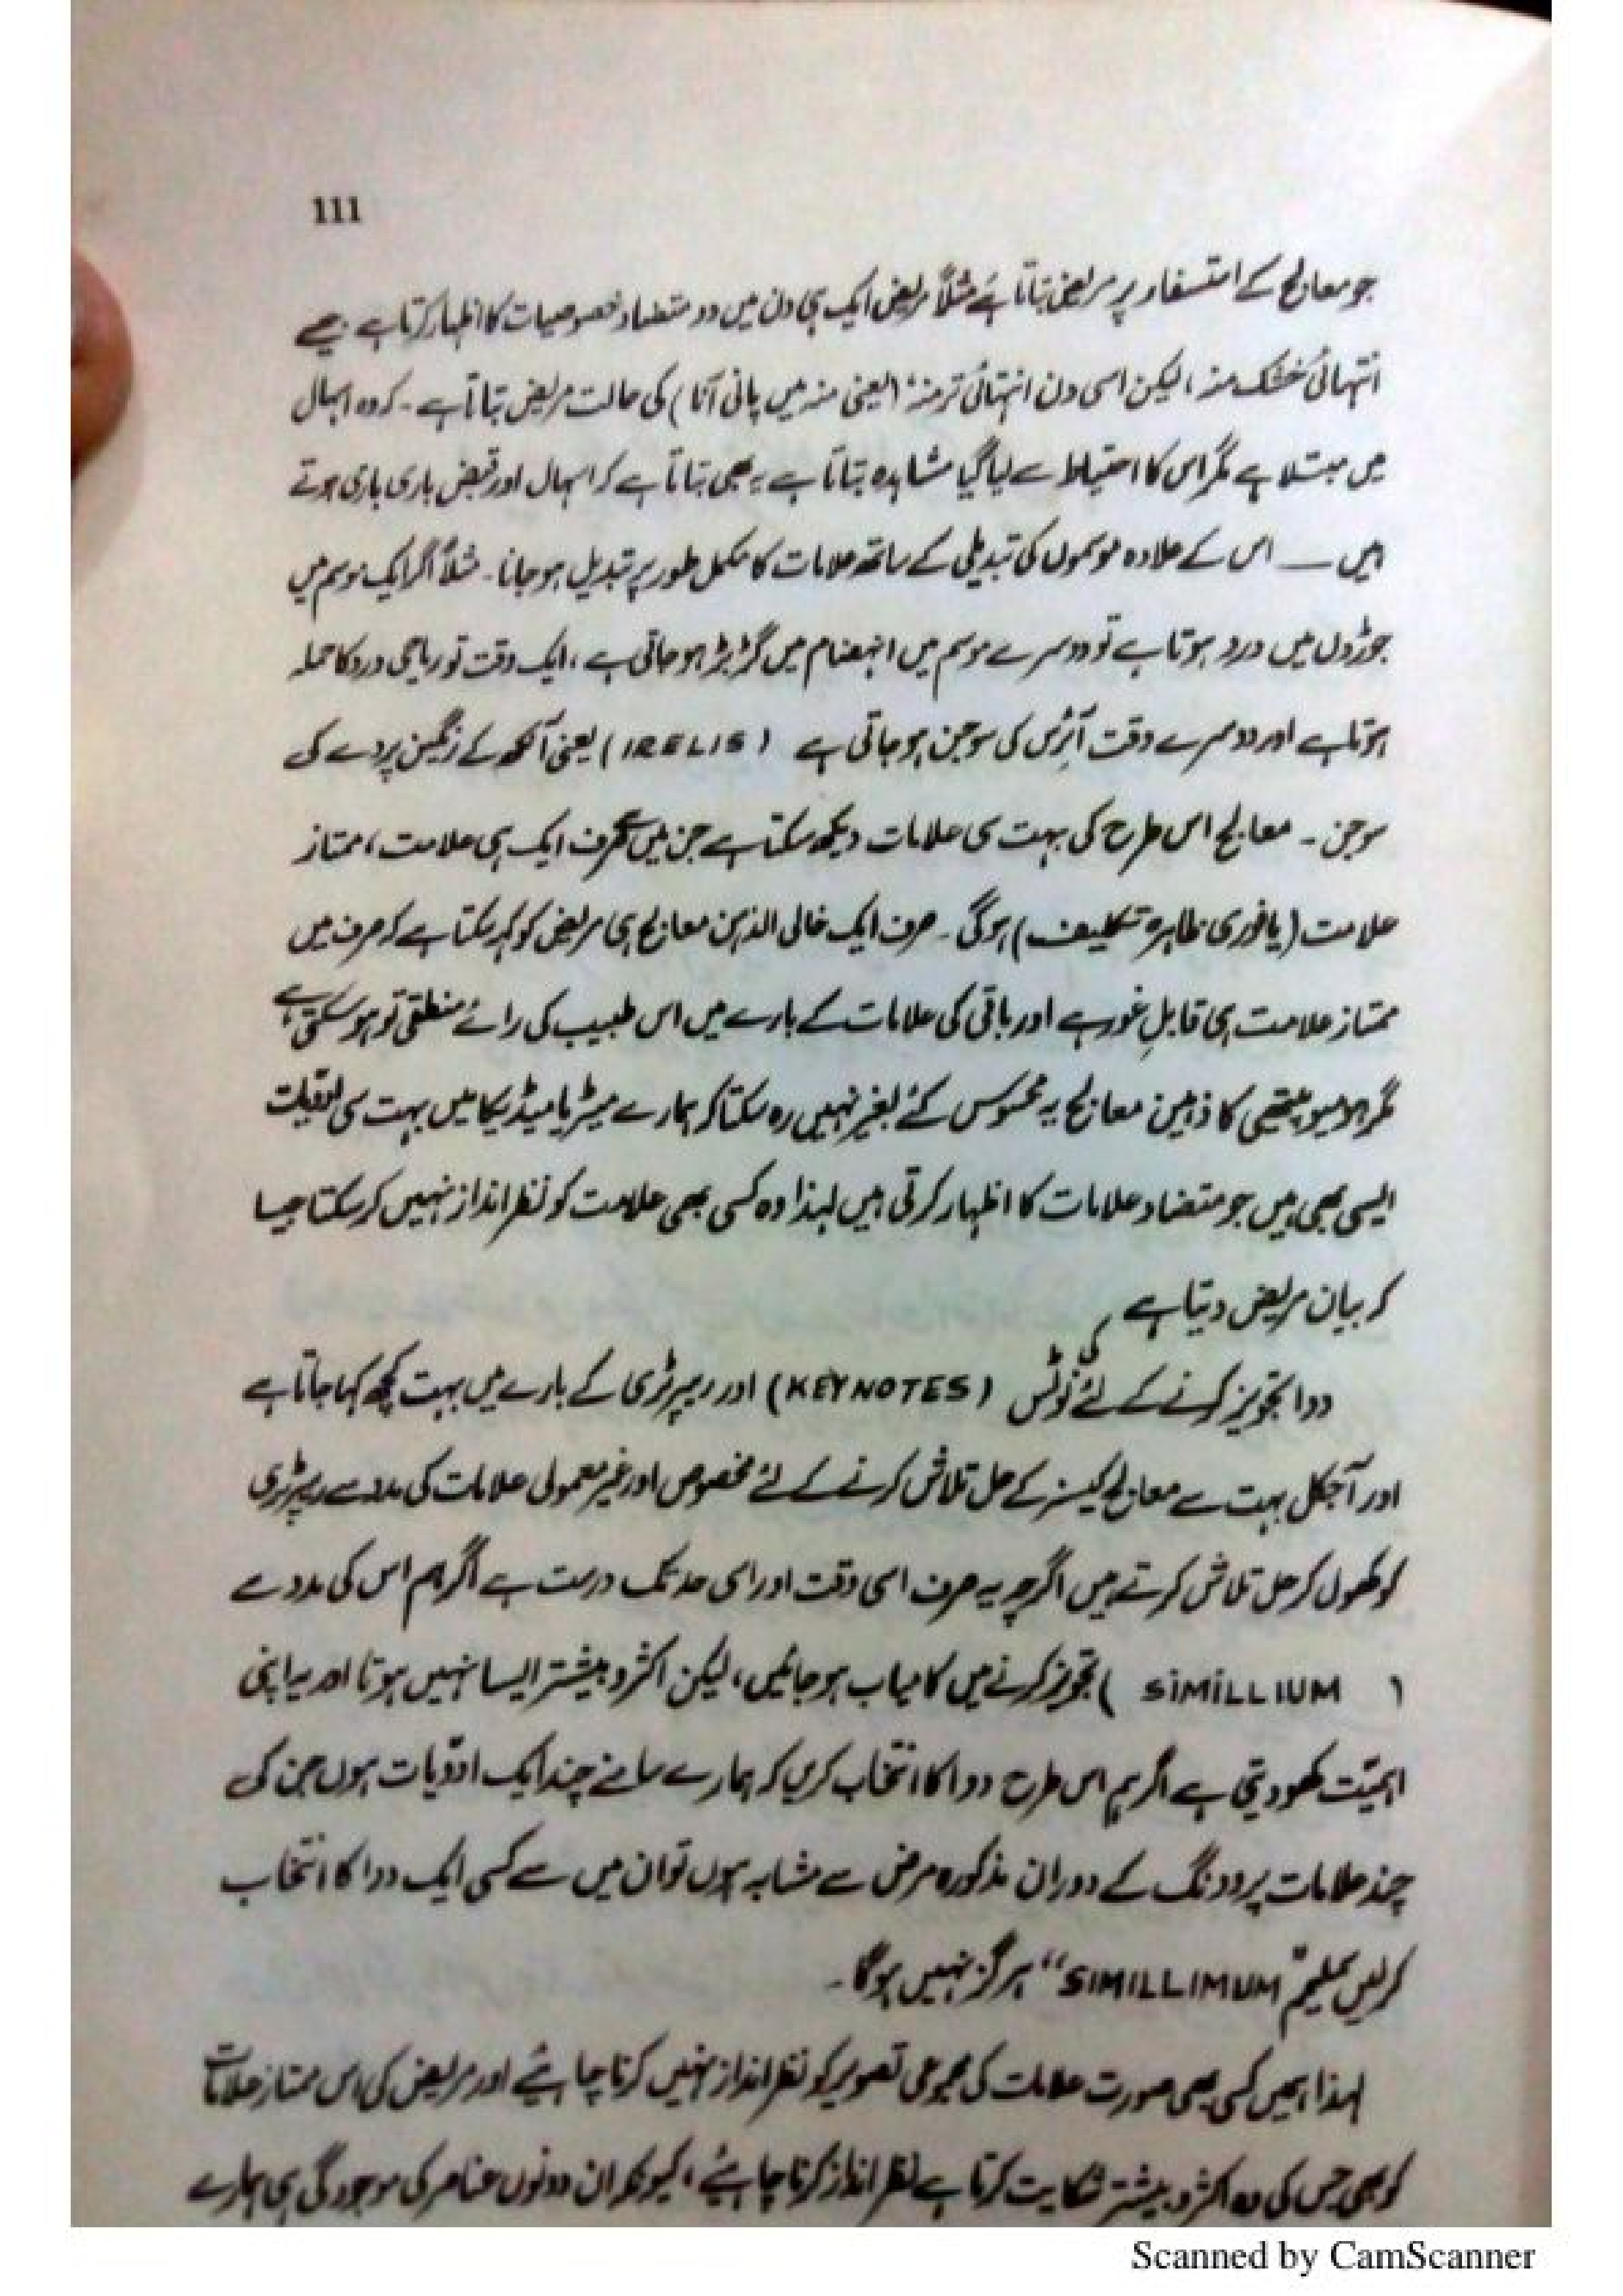 111
جو معالج کے استفسار پر مریض بتاتا ہے مثلاً مریض ایک ہی دن میں دو متضاد خصوصیات کا اظہار کرتا ہے جیسے
انتہائی خشک منہ، لیکن اسی دن انتہائی تر منہ (یعنی منہ میں پانی آنا) کی حالت مریض بتاتا ہے۔ کہ وہ اسہال
میں مبتلا ہے مگر اس کا احتیاط سے لیا گیا مشاہدہ بتاتا ہے یہ بھی بتاتا ہے کہ اسہال اور قبض باری باری ہوتے
ہیں ــــ اس کے علاوہ موسموں کی تبدیلی کے ساتھ علامات کا مکمل طور پر تبدیل ہو جانا۔ مثلاً اگر ایک موسم میں
جوڑوں میں درد ہوتا ہے تو دوسرے موسم میں انہضام میں گڑبڑ ہو جاتی ہے، ایک وقت تو ریاحی درد کا حملہ
ہوتا ہے اور دوسرے وقت آئرس کی سوجن ہو جاتی ہے (IRELIS) یعنی آنکھ کے رنگین پردے کی
سوجن ۔ معالج اس طرح کی بہت سی علامات دیکھ سکتا ہے جن میں سے صرف ایک ہی علامت، ممتاز
علامت (یا فوری ظاہرہ تکلیف) ہوگی۔ صرف ایک خالی الذہن معالج ہی مریض کو کہہ سکتا ہے کہ صرف میں
ممتاز علامت ہی قابلِ غور ہے اور باقی کی علامات کے بارے میں اس طبیب کی رائے منطقی تو ہو سکتی ہے
مگر ہومیوپیتھی کا ذہین معالج یہ محسوس کئے بغیر نہیں رہ سکتا کہ ہمارے میٹریا میڈیکا میں بہت سی
ایسی بھی ہیں جو متضاد علامات کا اظہار کرتی ہیں لہذا وہ کسی بھی علامت کو نظر انداز نہیں کر سکتا جیسا
کہ بیان مریض دیتا ہے
دوا تجویز کرنے کے لئے کی نوٹس (KEYNOTES) اور ریپرٹری کے بارے میں بہت کچھ کہا جاتا ہے
اور آجکل بہت سے معالج کیسز کے حل تلاش کرنے کے لئے مخصوص اور غیر معمولی علامات کی مدد سے ریپرٹری
کو کھول کر حل تلاش کرتے ہیں اگرچہ یہ صرف اسی وقت اور اسی حد تک درست ہے اگر ہم اس کی مدد سے
( SiMiLLIUM ) تجویز کرنے میں کامیاب ہو جائیں، لیکن اکثر و بیشتر ایسا نہیں ہوتا اور یہ اپنی
اہمیّت کھو دیتی ہے اگر ہم اس طرح دوا کا انتخاب کریں کہ ہمارے سامنے چند ایک ادویات ہوں جن کی
چند علامات پروونگ کے دوران مذکورہ مرض سے مشابہ ہوں تو ان میں سے کسی ایک دوا کا انتخاب
کر لیں سمیلیم "SIMILLIMUM" ہرگز نہیں ہوگا۔
لہذا ہمیں کسی بھی صورت علامات کی مجموعی تصویر کو نظر انداز نہیں کرنا چاہئیے اور مریض کی اس ممتاز علامات
کو بھی جس کی وہ اکثر و بیشتر شکایت کرتا ہے نظر انداز کرنا چاہئیے، کیونکہ ان دونوں عناصر کی موجودگی ہی ہمارے
Scanned by CamScanner